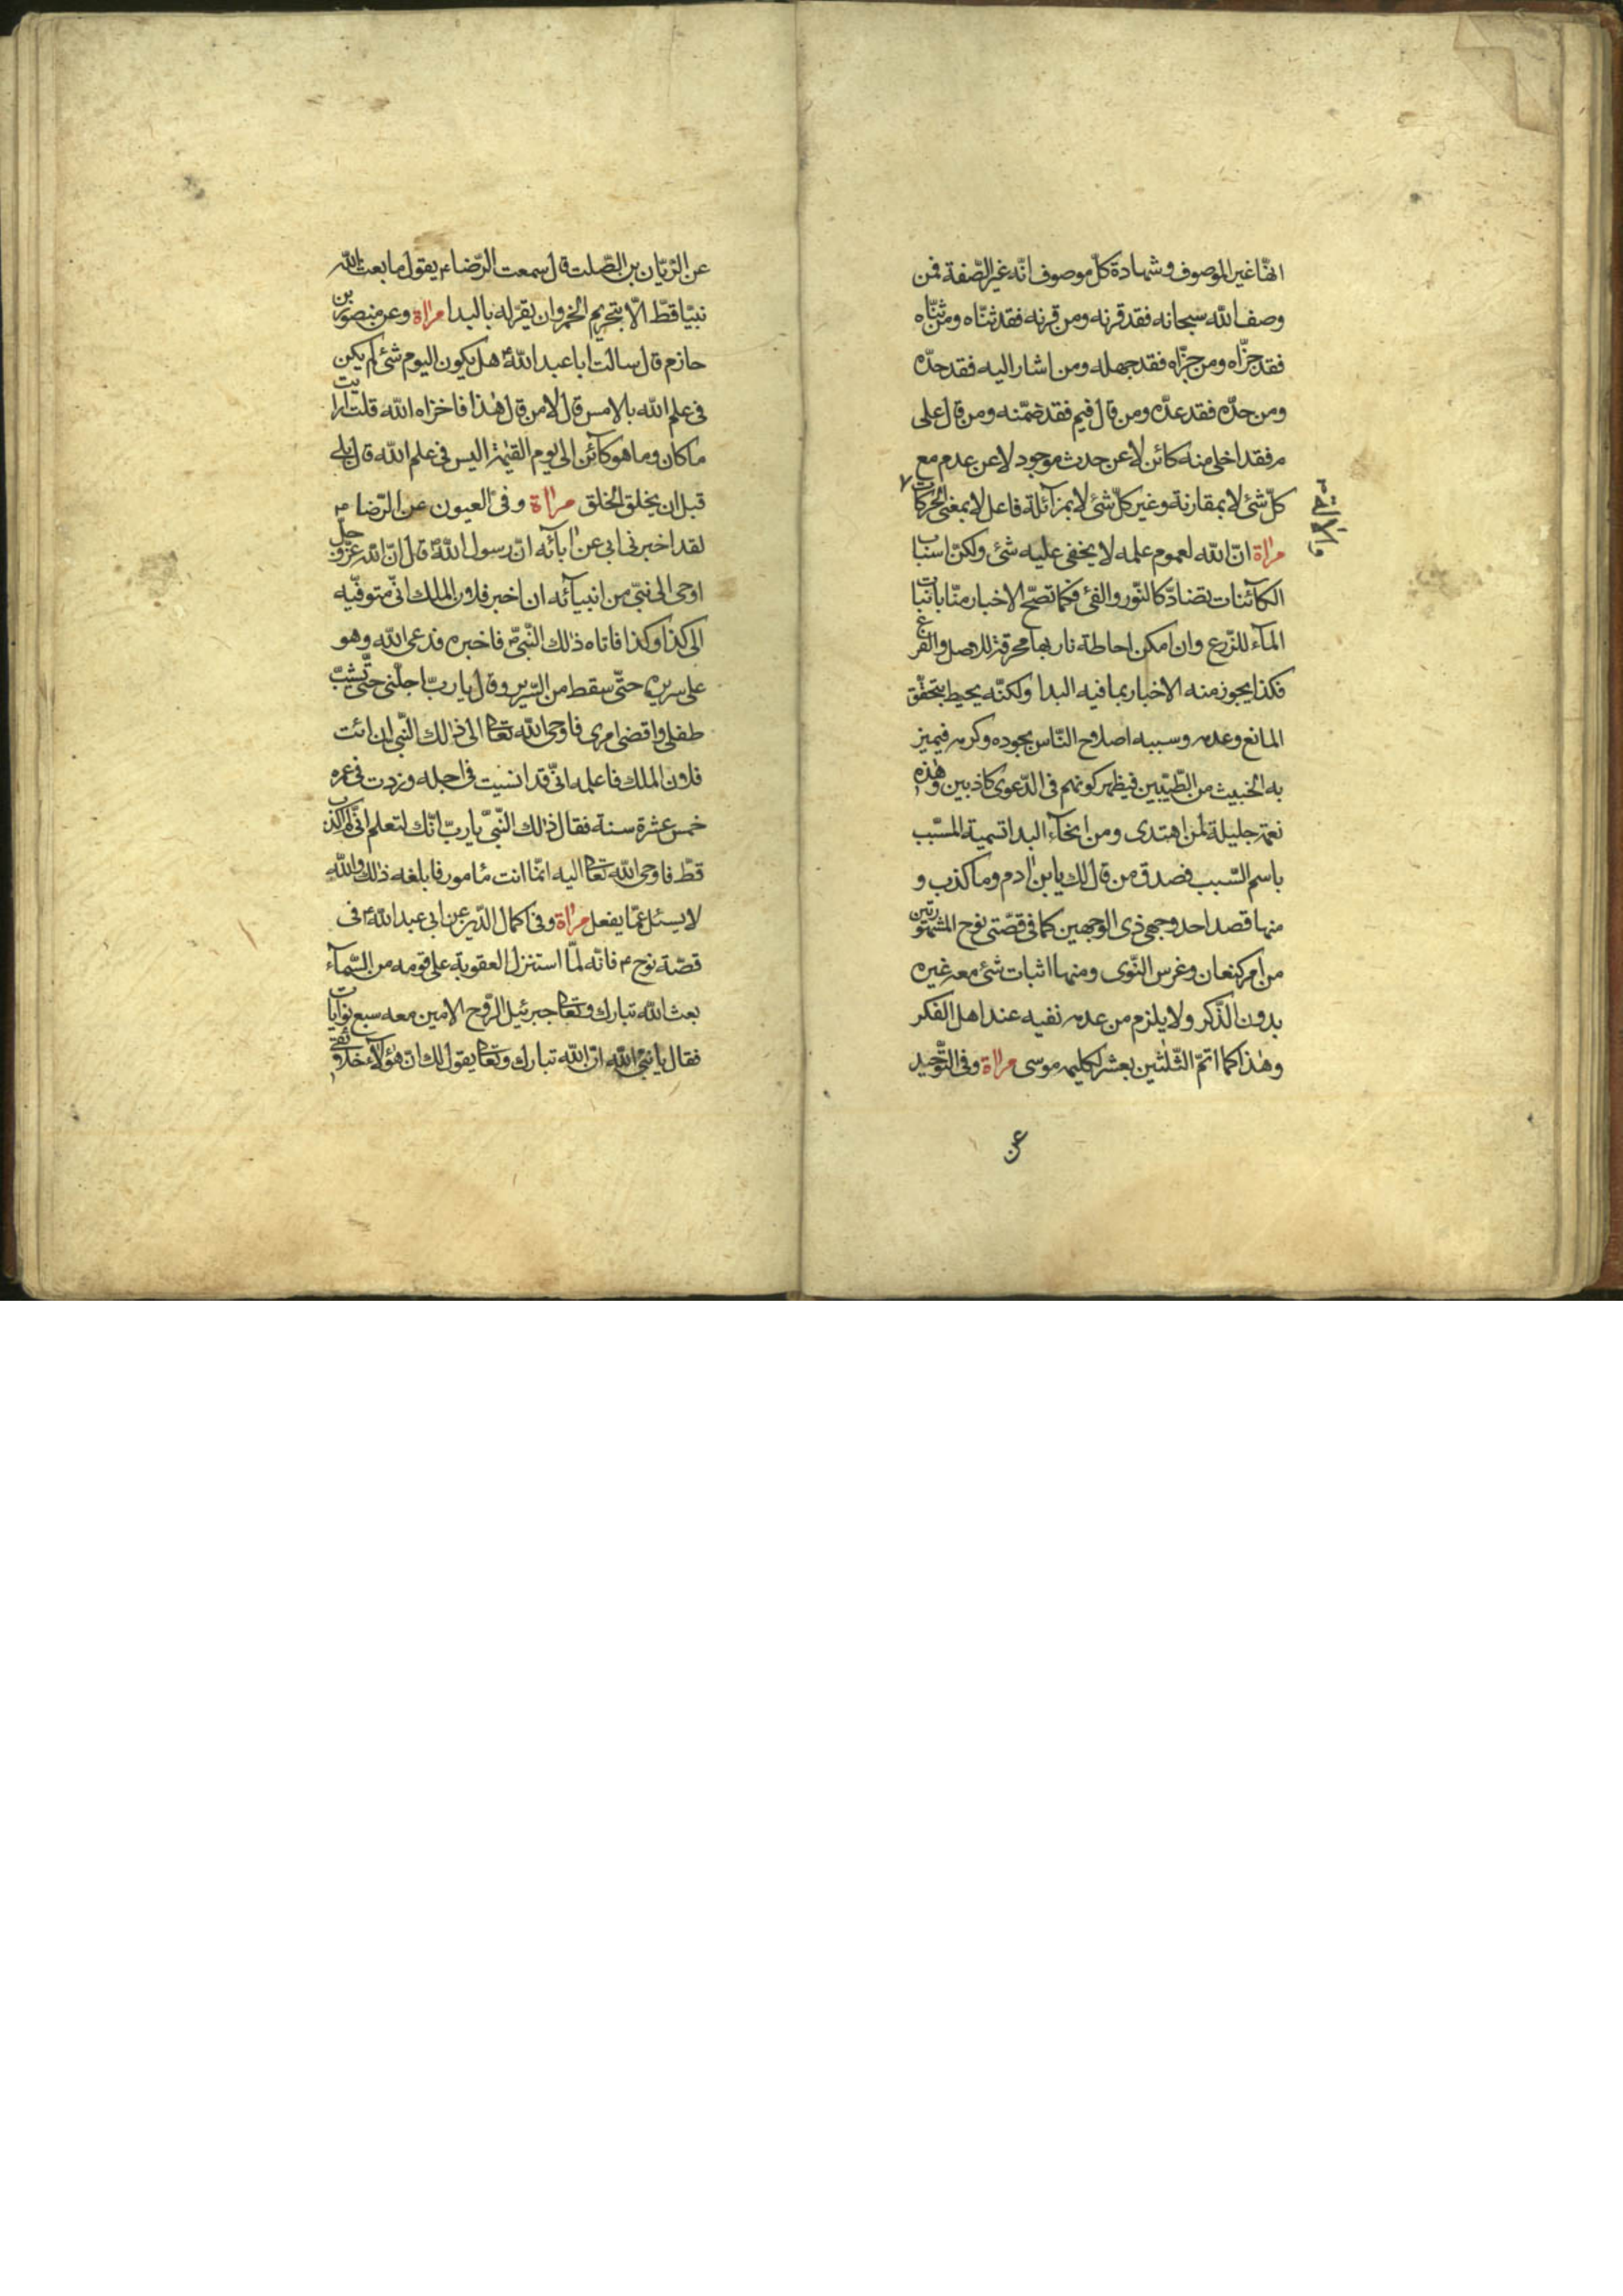 انها غير الموصوف وشهادة كلّ موصوف انّه غير الصّفة فمن
وصف الله سبحانه فقد قرنه ومن قرنه فقد ثنّاه ومن ثنّاه
فقد جزّاه ومن جزّاه فقد جهله ومن اشار اليه فقد حدّه
ومن حدّه فقد عدّه ومن قال فيم فقد ضمّنه ومن قال على
م فقد اخلى منه كائن لا عن حدث موجود لا عن عدم مع
كلّ شئ لا بمقارنة وغير كلّ شئ لا بمزآئلة فاعل لا بمعنى الحركات
والالة
مراة انّ الله لعموم علمه لا يخفى عليه شئ ولكنّ اسباب
الكآئنات بتضادّ كالنّور والفئ فكما تصّح الاخبار منّا بانبات
المآء للزّرع وان امكن احاطة نار بها محرقة للاصل والفرع
فكذا يجوز منه الاخبار بما فيه البدا ولكنّه يحيط بتحقّق
المانع وعدمه وسببه اصلاح النّاس بجوده وكرمه فيميز
به الخبيث من الطّيّبين فيظهر كونهم فى الدّعوى كاذبين وهذه
نعمة جليلة لمن اهتدى ومن انحآء البدا تسمية المسّبب
باسم السّبب فصدق من قال لك يابن ادم وما كذب و
منها قصد احد وجهى ذى الوجهين كما فى قصّتى نوح المشهورتين
من امر كنعان وغرس النّوى ومنها اثبات شئ معه غيره
بدون الذّكر ولا يلزم من عدمه نفيه عند اهل الفكر
وهذا كما اتمّ الثّلثين بعشر لكليمه موسى مراة وفى التّوحيد
عن
عن الرّيّان بن الصّلت قال سمعت الرّضا ع يقول ما بعث الله
نبيّا قطّ الّا بتحريم الخمر وان يقرّ له بالبدا مراة وعن منصور بن
حازم قال سالت ابا عبد الله ع هل يكون اليوم شئ لم يكن
فى علم الله بالامس قال لا من قال هذا فاخزاه الله قلت ارايت
ما كان وما هو كآئن الى يوم القيمة اليس فى علم الله قال بلى
قبل ان يخلق الخلق مراة وفى العيون عن الرّضا ع
لقد اخبرنى ابى عن ابآئه انّ رسول الله ص قال انّ الله عزّ وجلّ
اوحى الى نبّى من انبيآئه ان اخبر فلان الملك انّى متوفّيه
الى كذا وكذا فاتاه ذلك النّبىّ فاخبره فدعى الله وهو
على سريره حتّى سقط من السّرير وقال يا ربّ اجلّنى حتّى يشبّ
طفلى واقضى امرى فاوحى الله تعالى الى ذلك النّبى ان ائت
فلان الملك فاعلمه انّى قد انسيت فى اجله وزدت فى عمره
خمس عشرة سنة فقال ذلك النّبىّ يا ربّ انّك لتعلم انّى لم اكذب
قطّ فاوحى الله تعالى اليه انّما انت مأمور فابلغه ذلك والله
لا يسئل عمّا يفعل مراة وفى اكمال الدّين عن ابى عبد الله ع فى
قصّة نوح ع فانّه لمّا استنزل العقوبة على قومه من السّمآء
بعث الله تبارك وتعالى جبرئيل الرّوح الامين معه سبع نوايات
فقال يا نبىّ الله انّ الله تبارك وتعالى يقول لك انّ هؤلآء خلائقى